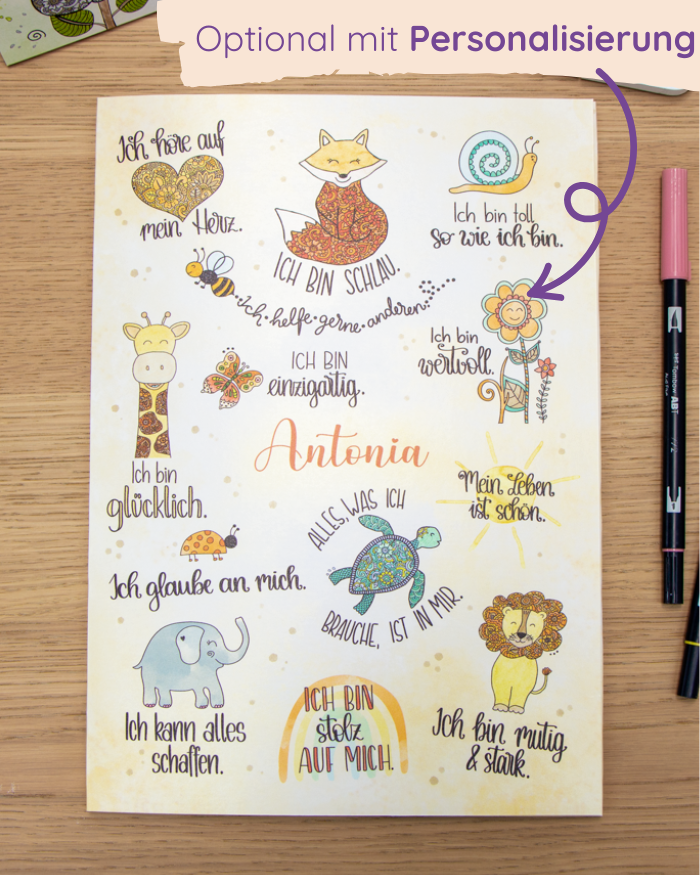 Optional mit Personalisierung
Ich höre auf
mein Herz.
ICH BIN SCHLAU.
Ich bin toll
so wie ich bin.
Ich · helfe · gerne · anderen.
Ich bin
wertvoll.
ICH BIN
einzigartig.
Antonia
Ich bin
glücklich.
Mein Leben
ist schön.
ALLES, WAS ICH
BRAUCHE, IST IN MIR.
Ich glaube an mich.
Ich kann alles
schaffen.
ICH BIN
stolz
AUF MICH.
Ich bin mutig
& stark.